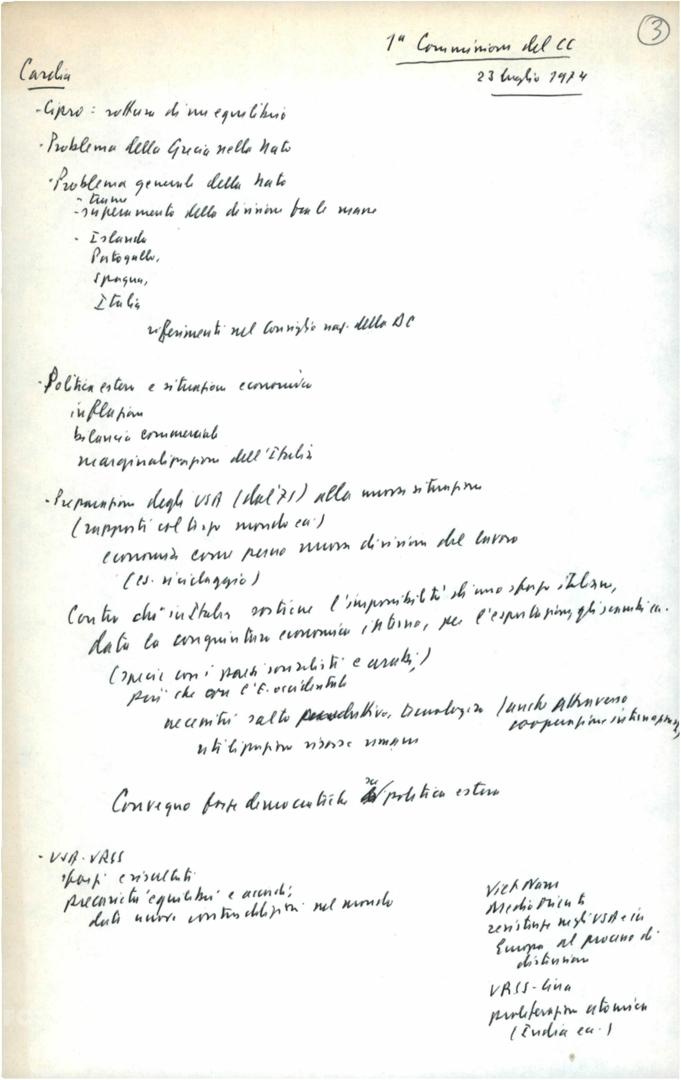 3
1ª Commissione del CC
23 luglio 1974
Cardia
- Cipro: rottura di un equilibrio
- Problema della Grecia nella Nato
- Problema generale della Nato
- trame
- superamento della divisione fra le
- Islanda
Portogallo,
Spagna,
Italia
riferimenti nel Consiglio naz. della DC
- Politica estera e situazione economica
inflazione
bilancia commerciale
marginalizzazione dell'Italia
- Preparazione degli USA (dal '71) alla nuova situazione
(rapporti col terzo mondo ecc.)
economia come perno nuova divisione del lavoro
(es. riciclaggio)
Contro chi in Italia sostiene l'impossibilità di uno sforzo italiano,
data la congiuntura economica interna, per l'esportazione, gli scambi ecc.
(specie con i paesi socialisti e arabi)
più che con l'E. occidentale
necessità salto produttivo, tecnologico (anche attraverso
cooperazione internazionale,
utilizzazione risorse umane
Convegno forze democratiche su politica estera
- USA-URSS
sforzi e risultati
precarietà equilibri e accordi;
dati nuove contraddizioni nel mondo
Viet Nam
Medio Oriente
resistenze negli USA e in
Europa al processo di
distensione
URSS-Cina
proliferazione atomica
(India ecc.)